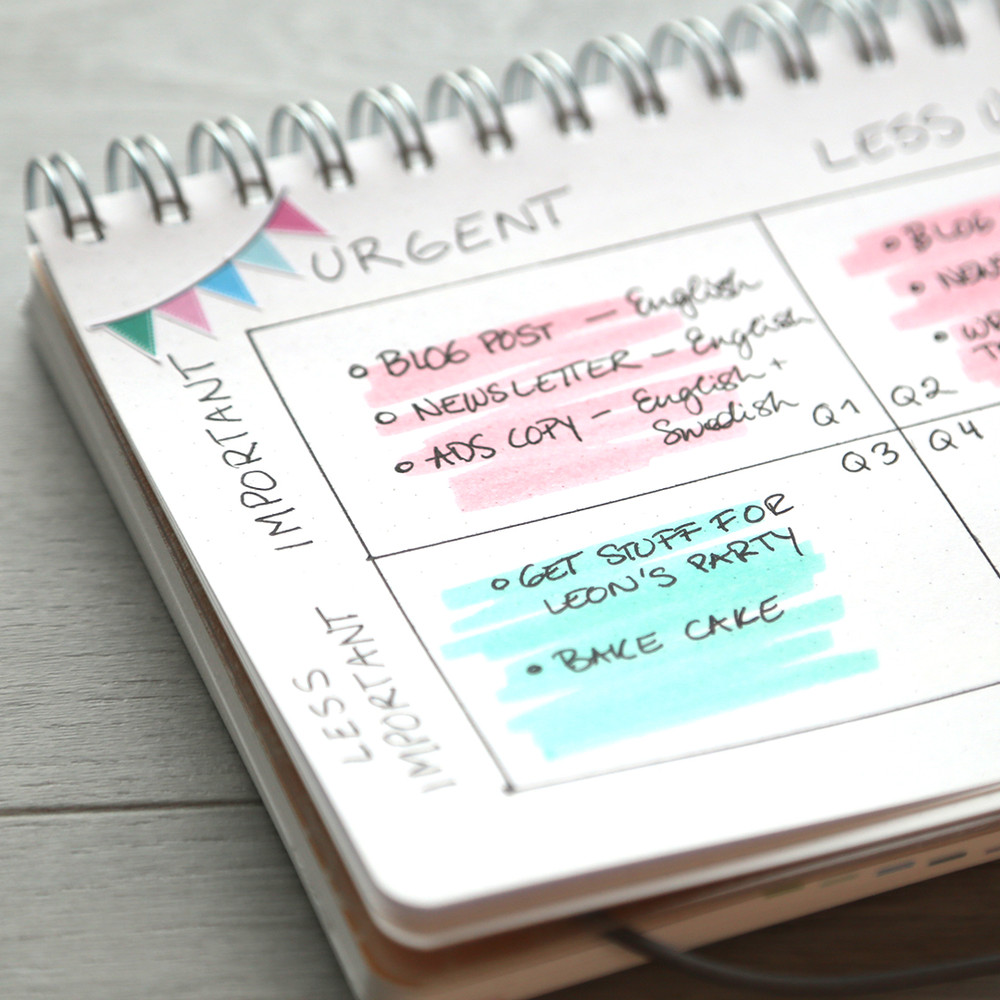 URGENT
LESS
IMPORTANT
BLOG POST — English
NEWSLETTER — English
ADS COPY — English +
Swedish
Q1
Q2
BLOG
Q3
Q4
LESS
IMPORTANT
GET STUFF FOR
LEON'S PARTY
BAKE CAKE